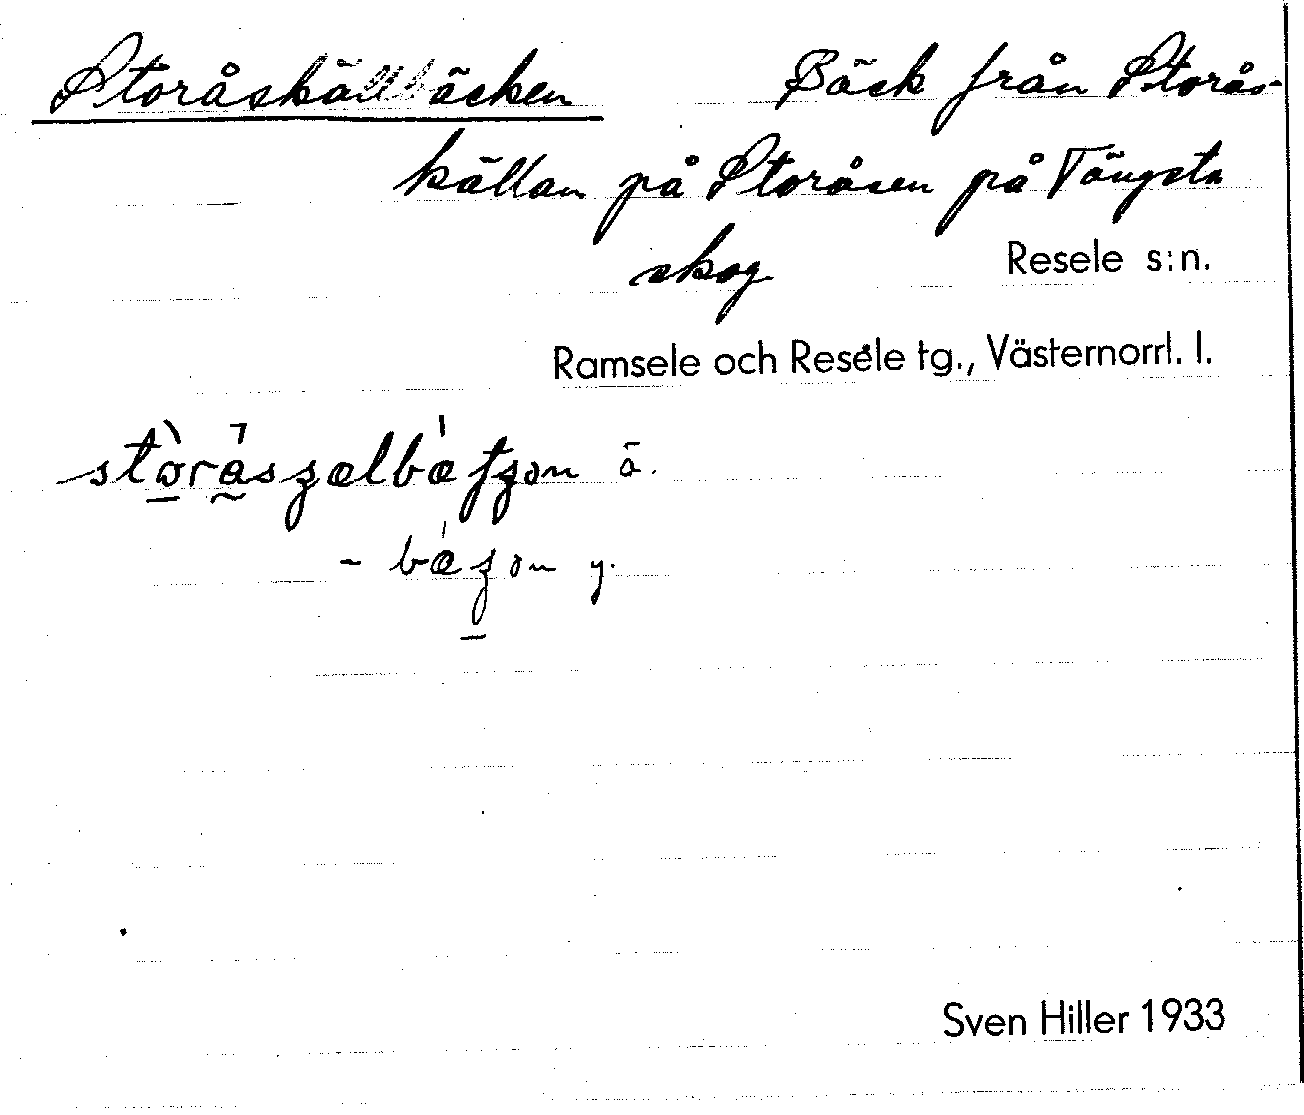 Storåskällbäcken Bäck från Storås-
källan på Storåsen på Tängsta
skog Resele s:n.
Ramsele och Resele tg., Västernorrl. l.
ä.
y.
Sven Hiller 1933